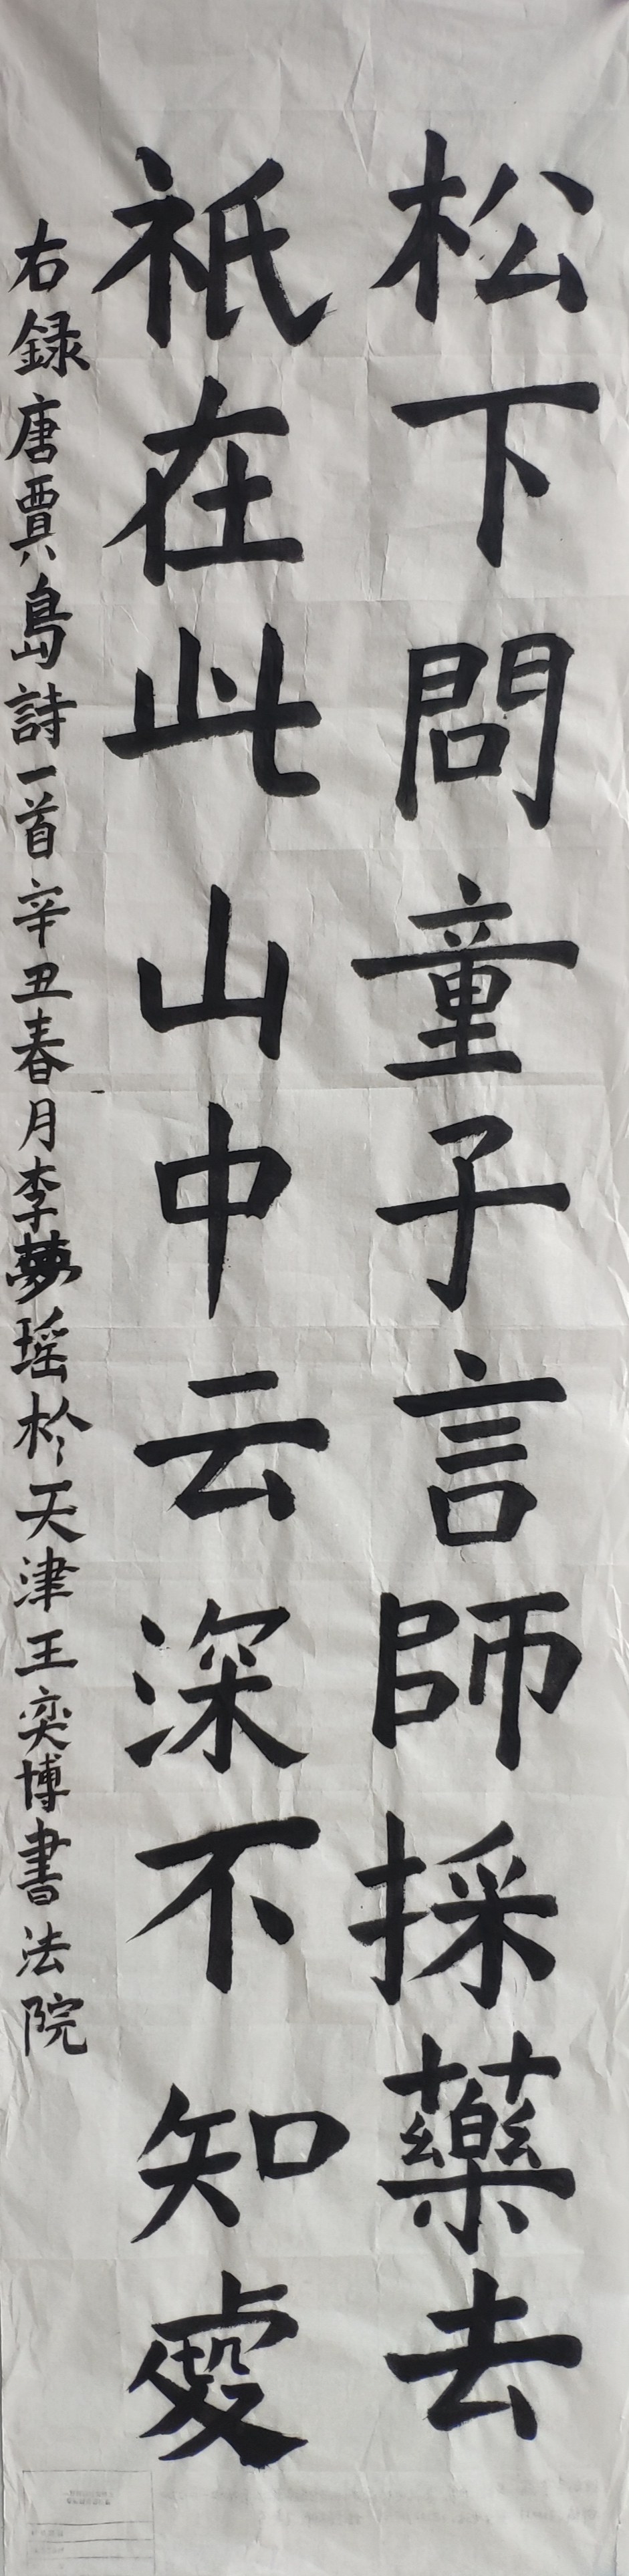 松下問童子言師採藥去
祇在此山中云深不知處
右録唐賈島詩一首辛丑春月李夢瑶於天津王奕博書法院